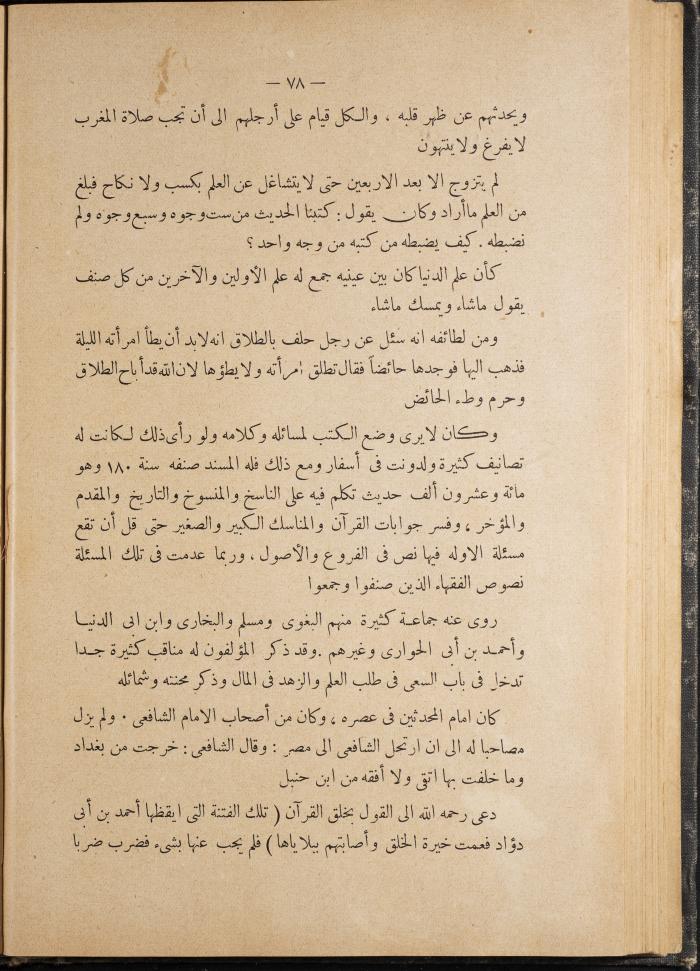 — ٧٨ —
ويحدثهم عن ظهر قلبه ، والـكل قيام على أرجلهم الى أن تجب صلاة المغرب
لايفرغ ولاينتهون
لم يتزوج الا بعد الاربعين حتى لايتشاغل عن العلم بكسب ولا نكاح فبلغ
من العلم ماأراد وكان يقول : كتبنا الحديث من ست وجوه وسبع وجوه ولم
نضبطه . كيف يضبطه من كتبه من وجه واحد ؟
كأن علم الدنيا كان بين عينيه جمع له علم الأولين والآخرين من كل صنف
يقول ماشاء ويمسك ماشاء
ومن لطائفه انه سئل عن رجل حلف بالطلاق انه لابد أن يطأ امرأته الليلة
فذهب اليها فوجدها حائضاً فقال تطلق إمرأته ولا يطؤها لان الله قد أباح الطلاق
وحرم وطء الحائض
وكان لايرى وضع الـكتب لمسائله وكلامه ولو رأى ذلك لـكانت له
تصانيف كثيرة ولدونت فى أسفار ومع ذلك فله المسند صنفه سنة ١٨٠ وهو
مائة وعشرون ألف حديث تكلم فيه على الناسخ والمنسوخ والتاريخ والمقدم
والمؤخر ، وفسر جوابات القرآن والمناسك الـكبير والصغير حتى قل أن تقع
مسئلة الاوله فيها نص فى الفروع والأصول ، وربما عدمت فى تلك المسئلة
نصوص الفقهاء الذين صنفوا وجمعوا
روى عنه جماعـة كثيرة منهم البغوى ومسلم والبخارى وابن ابى الدنيـا
وأحمـد بن أبى الحوارى وغيرهم . وقد ذكر المؤلفون له مناقب كثيرة جـدا
تدخل فى باب السعى فى طلب العلم والزهد فى المال وذكر محنته وشمائله
كان امام المحدثين فى عصره ، وكان من أصحاب الامام الشافعى . ولم يزل
مصاحبا له الى ان ارتحل الشافعى الى مصر : وقال الشافعى : خرجت من بغداد
وما خلفت بها اتقى ولا أفقه من ابن حنبل
دعى رحمه الله الى القول بخلق القرآن ( تلك الفتنة التى ايقظها أحمد بن أبى
دؤاد فعمت خيرة الخلق وأصابتهم ببلاياها ) فلم يجب عنها بشىء فضرب ضربا